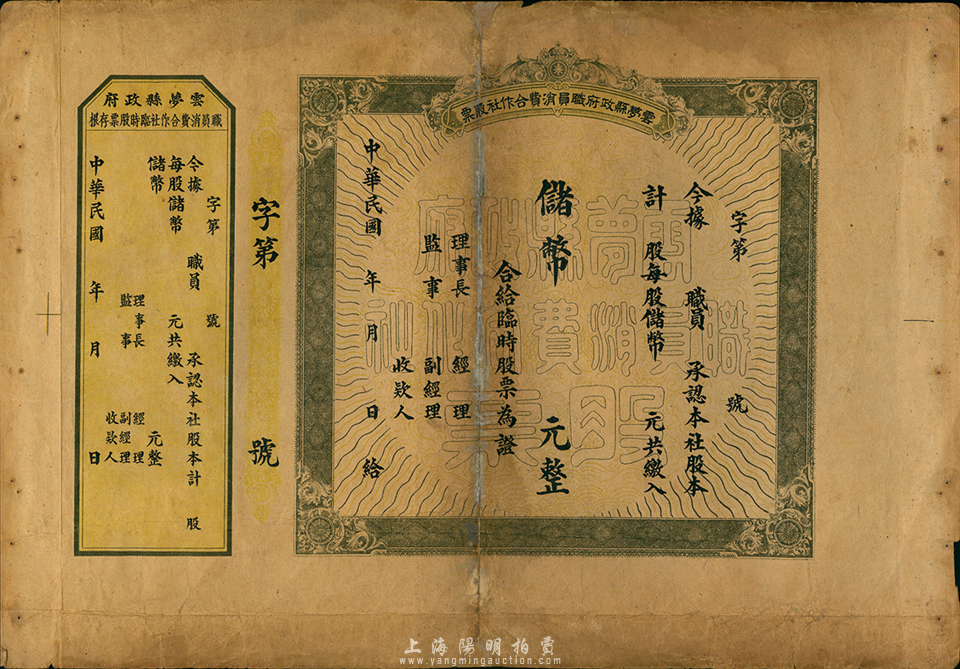 雲夢縣政府職員消費合作社股票
字第 號
今據 職員 承認本社股本
計 股每股儲幣 元共繳入
儲幣 元整
合給臨時股票為證
理事長 經理
監事 副經理
收款人
中華民國 年 月 日 給
雲夢縣政府
職員消費合作社
股票
字第 號
雲夢縣政府
職員消費合作社臨時股票存根
字第 號
今據 職員 承認本社股本計 股
每股儲幣 元共繳入
儲幣 元整
理事長 經理
監事 副經理
收款人
中華民國 年 月 日
上海陽明拍賣
www.yangmingauction.com